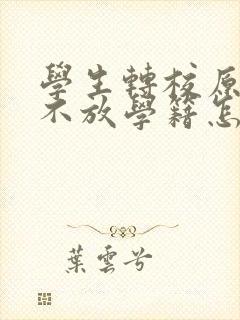 學生轉校原
不放學籍怎
葉雲兮